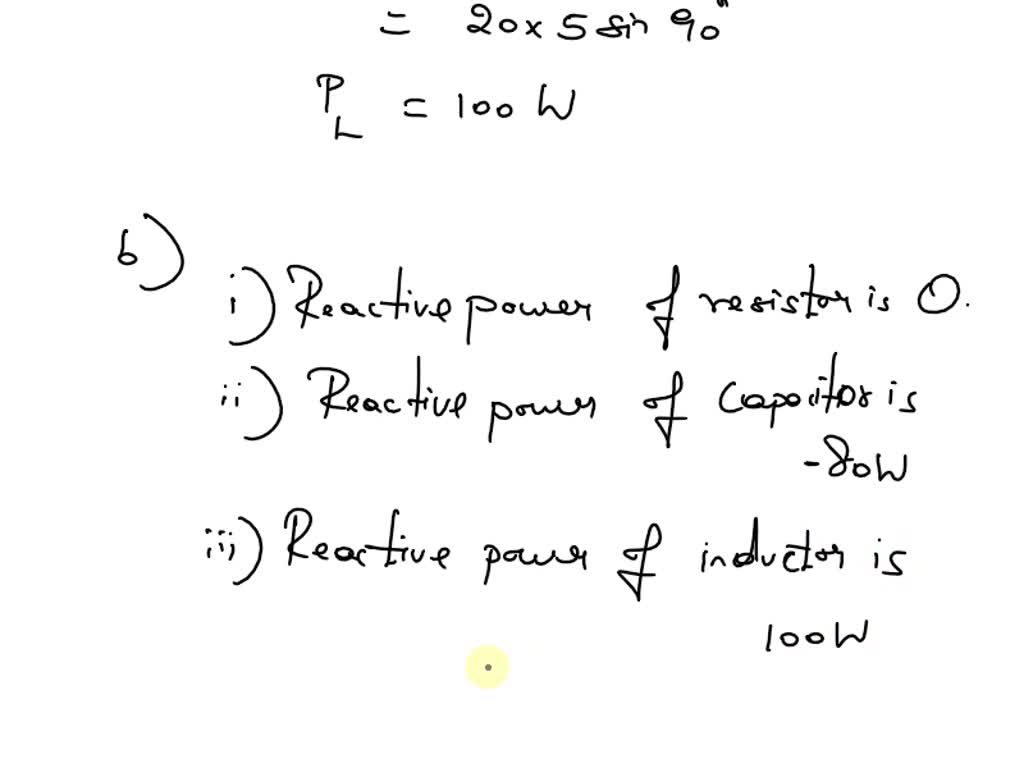 = 20 x 5 sin 90°
P_L = 100 W
b)
i) Reactive power of resistor is 0.
ii) Reactive power of capacitor is
-80W
iii) Reactive power of inductor is
100W